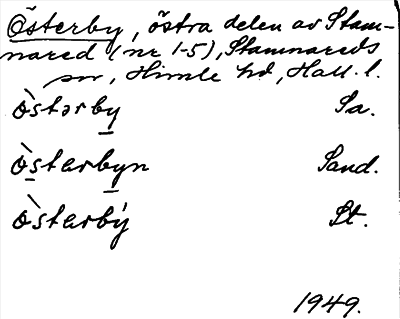 Österby, östra delen av Stam-
nared (nr 1-5), Stamnareds
sn, Himle hd, Hall. l.
òstərby Sa.
òstərbyn Sand.
òstərbý St.
1949.